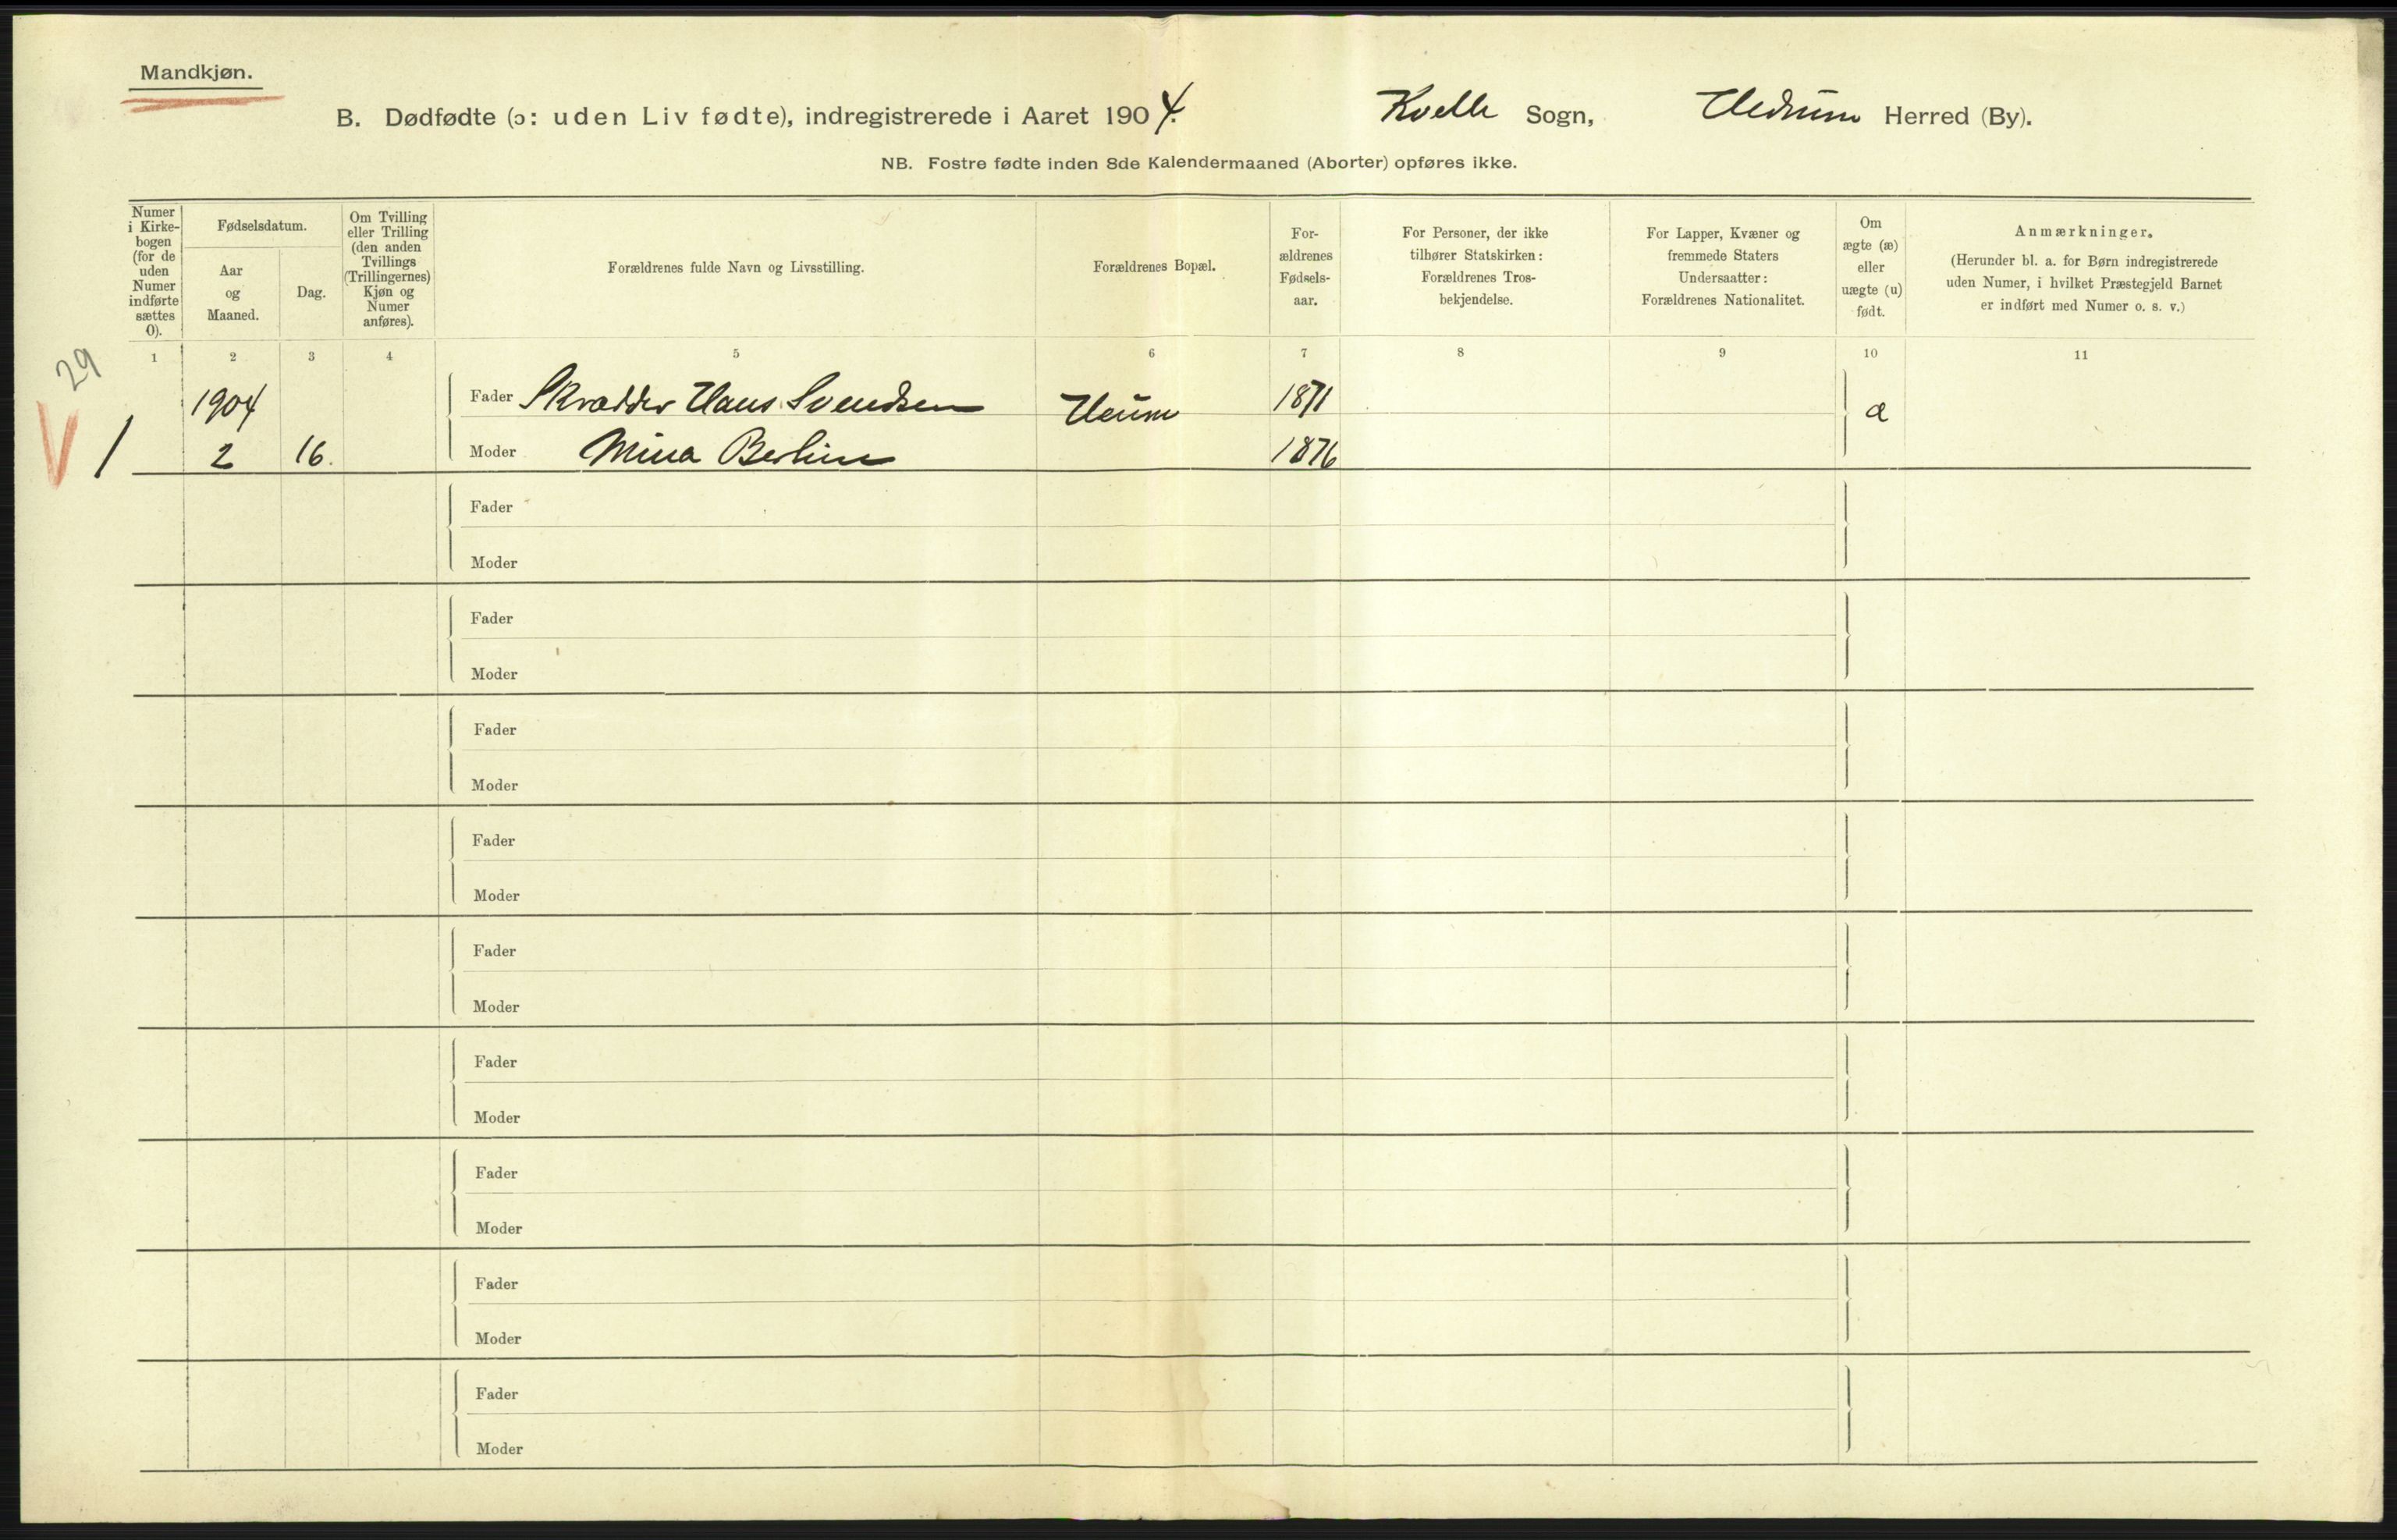 Mandkjøn.
B. Dødfødte (ɔ: uden Liv fødte), indregistrerede i Aaret 1904. Kvelle Sogn, Hedrum Herred (By).
NB. Fostre fødte inden 8de Kalendermaaned (Aborter) opføres ikke.
Numer
i Kirke-
bogen
(for de
uden
Numer
indførte
sættes
0).
Fødselsdatum.
Aar
og
Maaned.
Dag.
Om Tvilling
eller Trilling
(den anden
Tvillings
(Trillingernes)
Kjøn og
Numer
anføres).
Forældrenes fulde Navn og Livsstilling.
Forældrenes Bopæl.
For-
ældrenes
Fødsels-
aar.
For Personer, der ikke
tilhører Statskirken:
Forældrenes Tros-
bekjendelse.
For Lapper, Kvæner og
fremmede Staters
Undersaatter:
Forældrenes Nationalitet.
Om
ægte (æ)
eller
uægte (u)
født.
Anmærkninger.
(Herunder bl. a. for Børn indregistrerede
uden Numer, i hvilket Præstegjeld Barnet
er indført med Numer o. s. v.)
1 2 3 4 5 6 7 8 9 10 11
29
1904 Fader Skrædder Hans Svendsen 1871 æ
V 1 2 16. Moder Mina Berline 1876
Fader
Moder
Fader
Moder
Fader
Moder
Fader
Moder
Fader
Moder
Fader
Moder
Fader
Moder
Fader
Moder
Fader
Moder